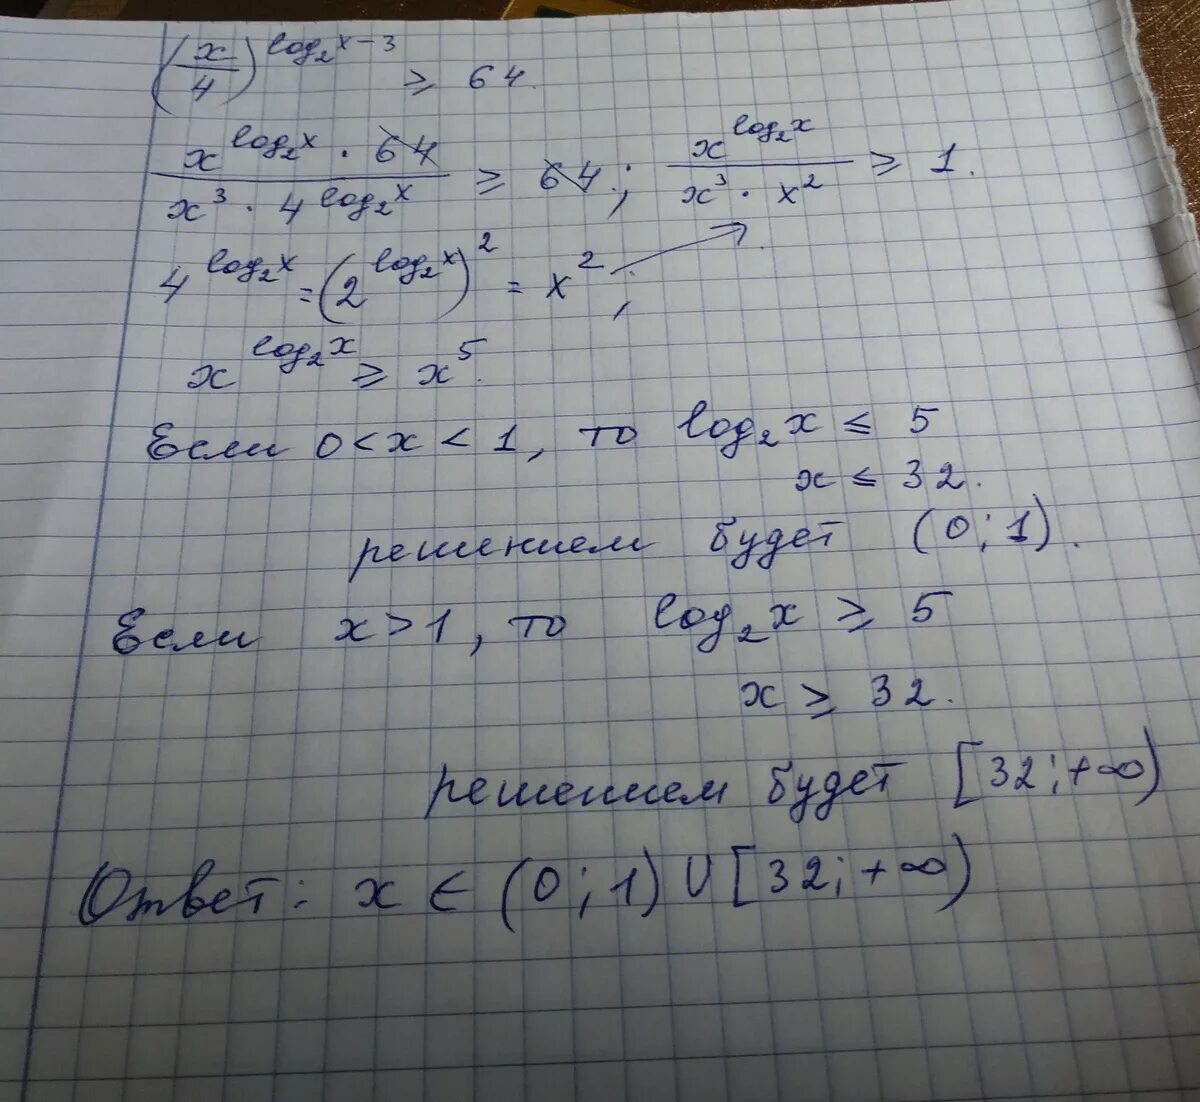 (x/4)^(log₂x−3) ≥ 64.
(x^(log₂x) · 64)/(x³ · 4^(log₂x)) ≥ 64; x^(log₂x)/(x³ · x²) ≥ 1.
4^(log₂x) = (2^(log₂x))² = x²;
x^(log₂x) ≥ x⁵.
Если 0 < x < 1, то log₂x ≤ 5
x ≤ 32.
решением будет (0; 1).
Если x > 1, то log₂x ≥ 5
x ≥ 32.
решением будет [32; +∞)
Ответ: x ∈ (0; 1) ∪ [32; +∞)